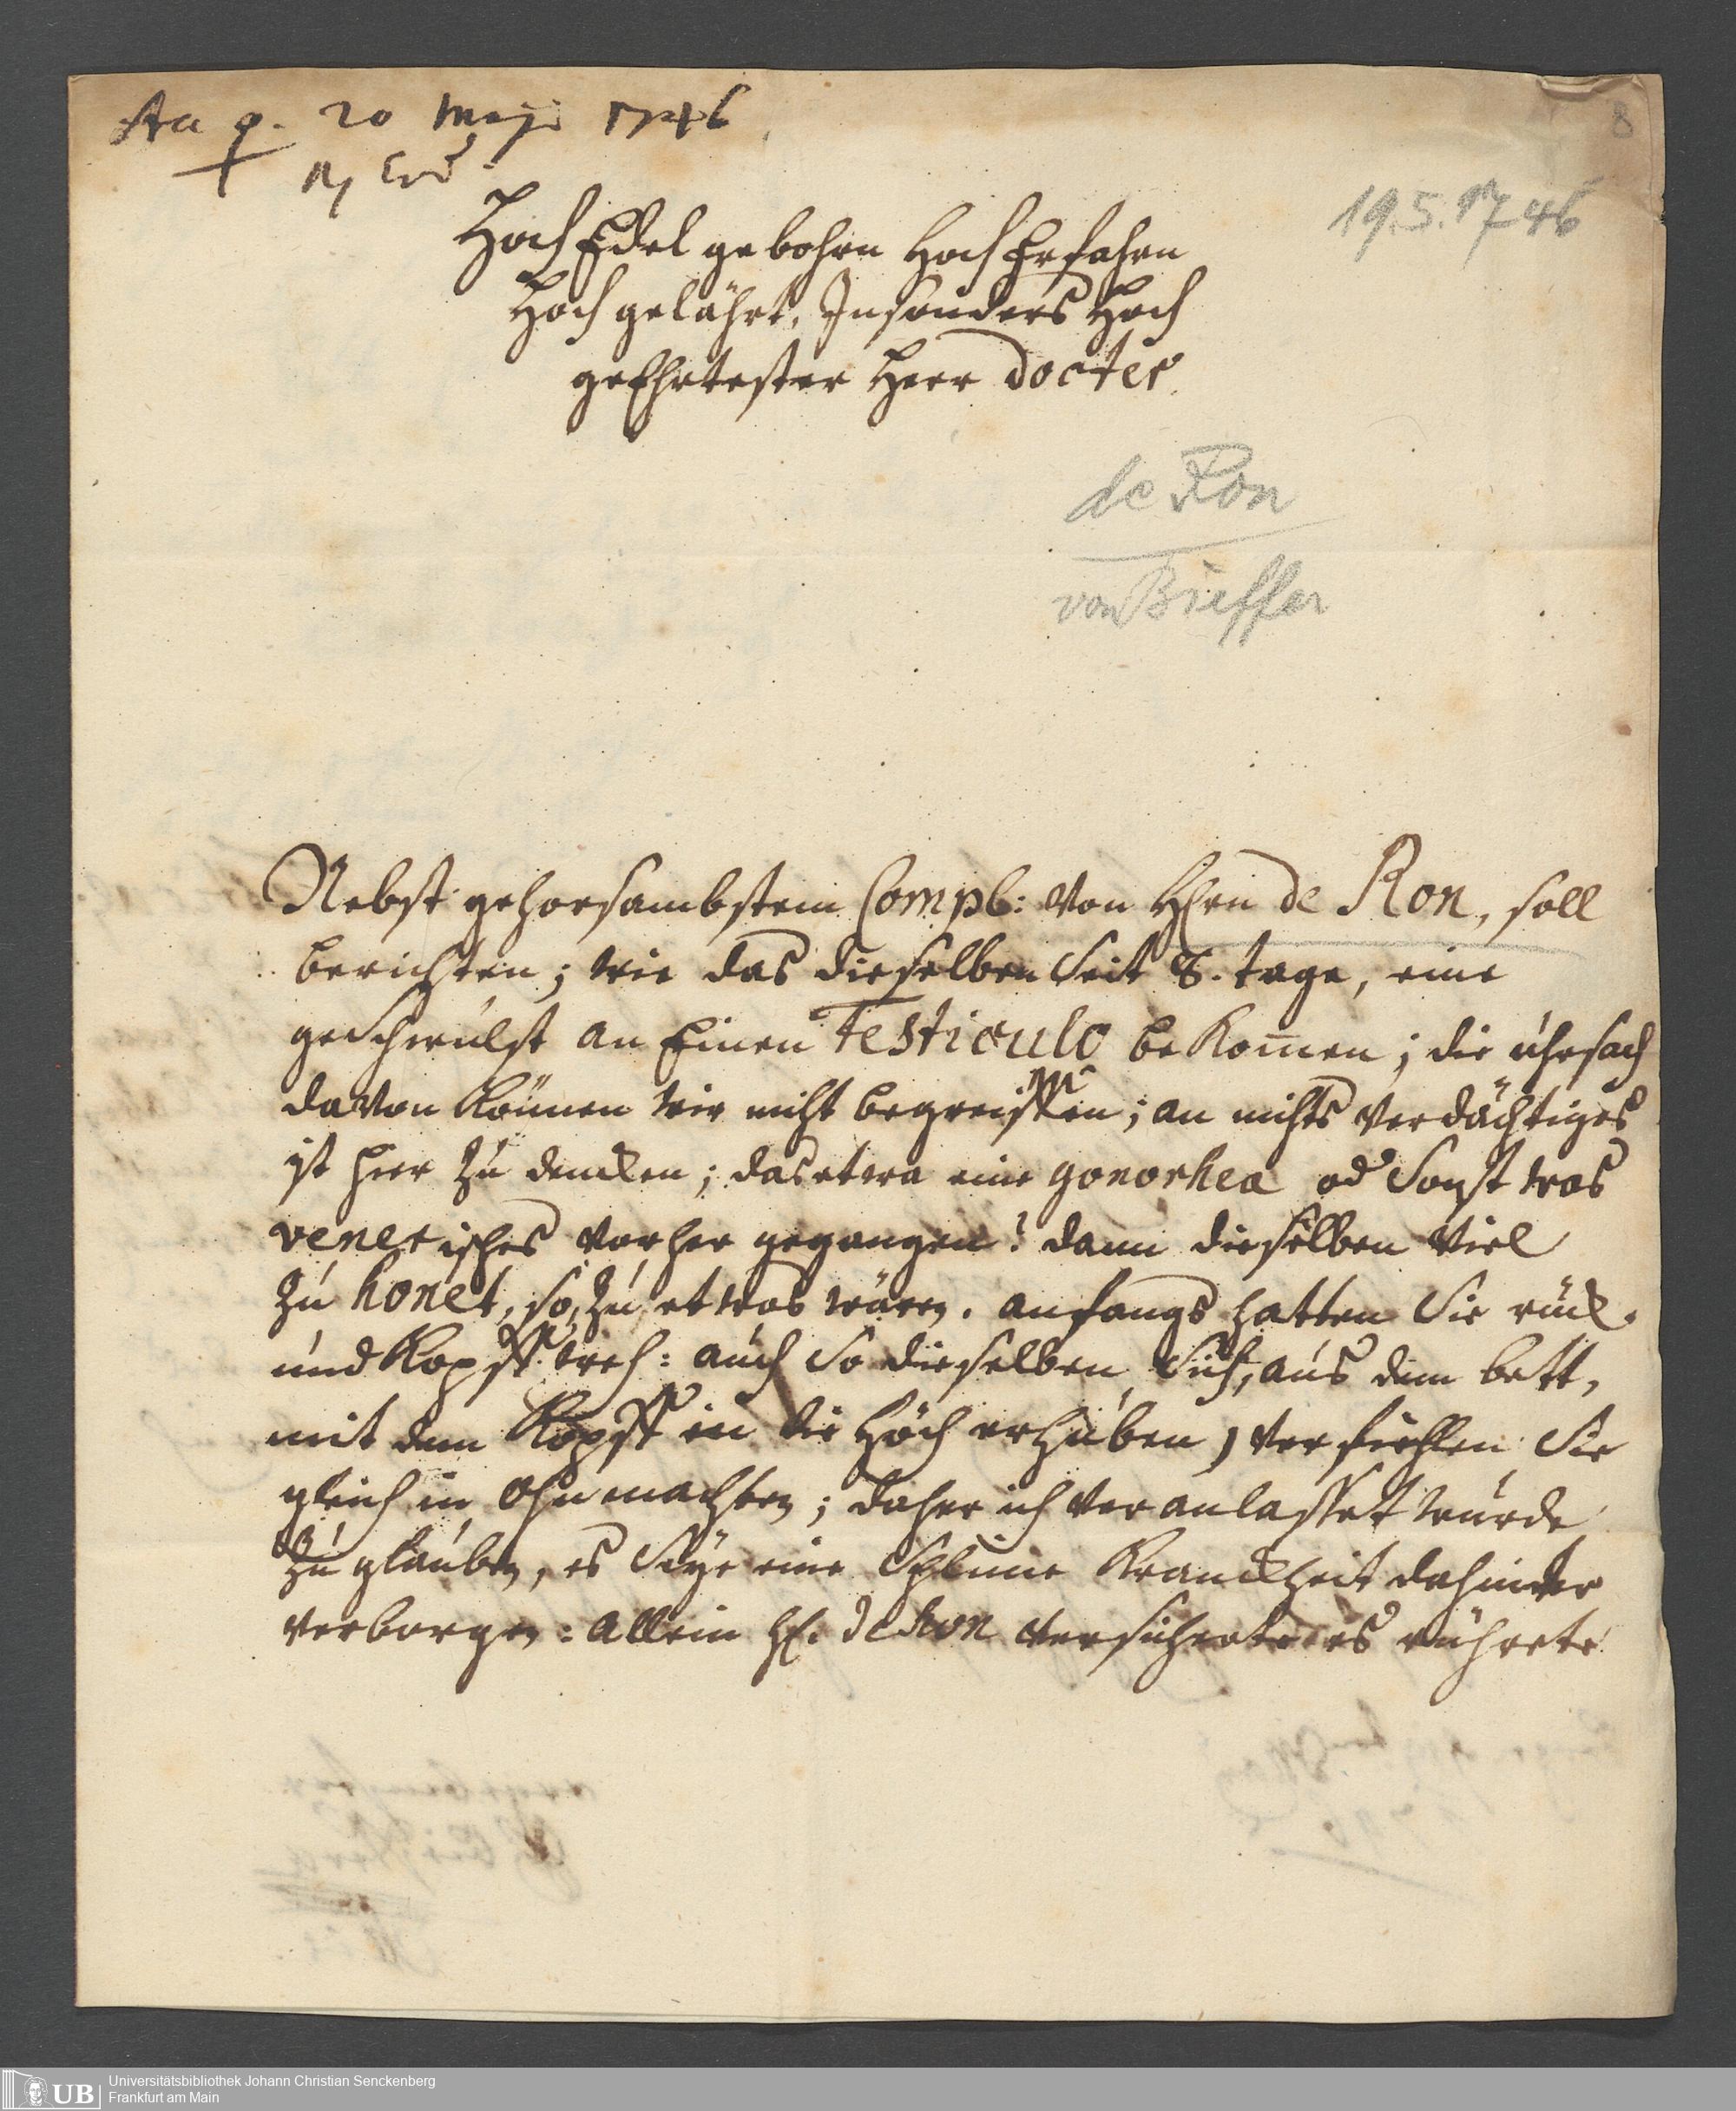 20 Maji 1746
8
19.5.1746
HochEdel gebohrn HochErfahrn
Hoch gelährt, Insonders Hoch
geEhrtester Herr Docter
de Ron
von Bieffer
Nebst gehorsambstem Compl: von Hhrn de Ron, soll
berichten; wie das dieselben Seit 8. tage, eine
geschwulst an Einen Testiculo beKomen; die uhrsach
davon Können wir nicht begreiffen; an nichts verdächtiges
ist hier zu dencken; das etwa eine gonorhea od Sonst was
venerisches vorher gegangen? dann dieselben viel
zu honet, so zu etwas wären. anfangs hatten Sie rück
und Kopff weh: auch So dieselben Sich, aus dem bett,
mit dem Kopff in die Höch erhuben, verfiehlen Sie
gleich in Ohnmachten; daher ich veranlasset wurde
zu glauben, es Seye eine Schlime Kranckheit dahinder
verborgen: Allein H. de Ron versicherte es rührete
UB
Universitätsbibliothek Johann Christian Senckenberg
Frankfurt am Main